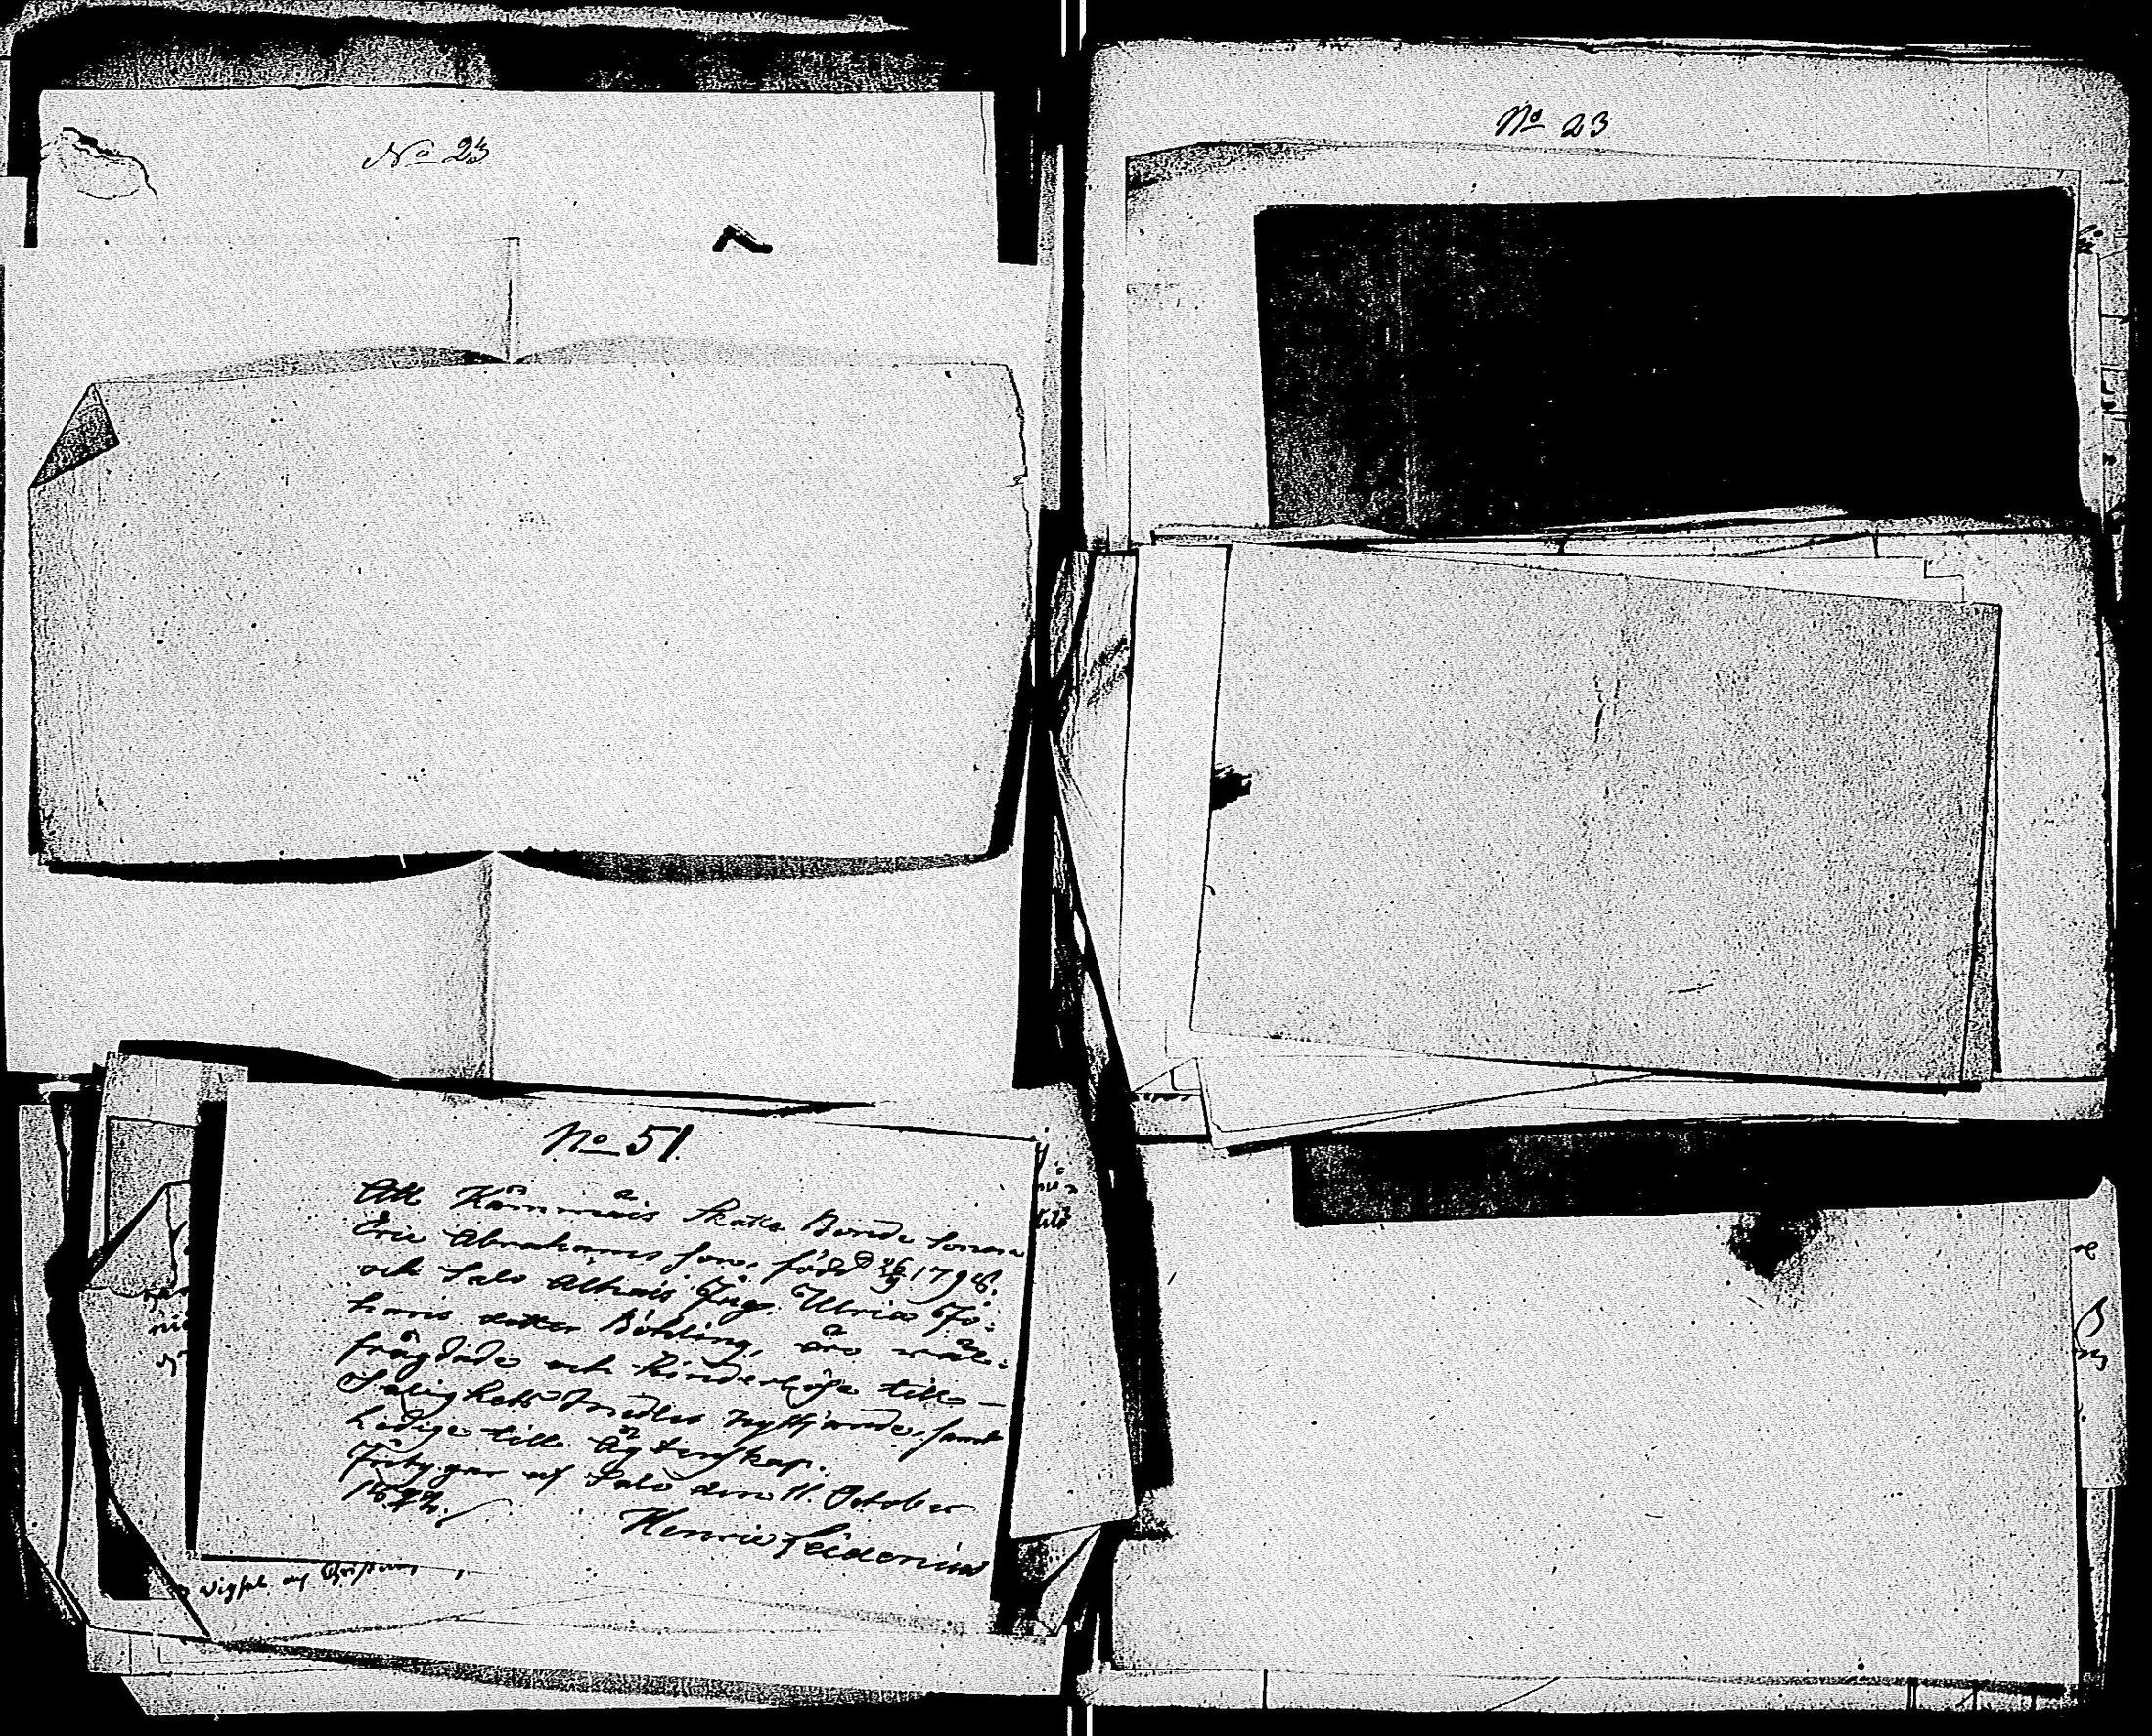 No 23
No 23
No 51
Att Kämnäis Skatte Bonde Sonen
Eric Abrahams son, född 26/9 1798.
och Salo Altnäis Pig. Ulrica Jo-
hans dotter Böhling, äro wäl-
frägdade och hinderlöse till
Salighets Medlens nyttjande, samt
ledige till Ägtenskap.
Betygar af Salo den 11. October
1822.
Henric Heiderius